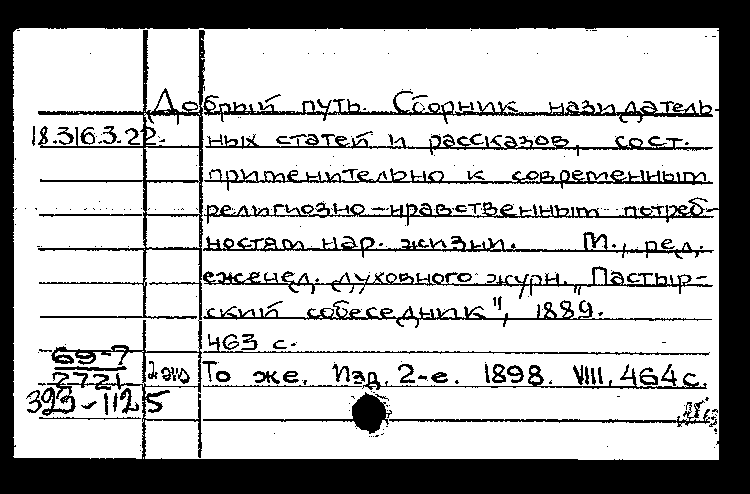 Добрый путь. Сборник назидатель-
18.316.3.22. ных статей и рассказов, сост.
применительно к современным
религиозно-нравственным потреб-
ностям нар. жизни. М., ред.
еженед. духовного журн. „Пастыр-
ский собеседник", 1889.
463 с.
69-7
2721 2 экз То же. Изд. 2-е. 1898. VIII, 464 с.
393-112 5